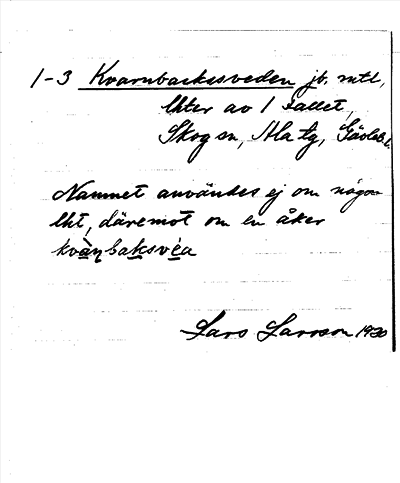 1-3 Kvarnbacksveden jb. mtl,
lhter av 1 Fallet,
Skog sn, Ala tg, Gävleb. l.
Namnet användes ej om någon
lht, däremot om en åker
kvàṇbaksvéa
Lars Larsson 1930